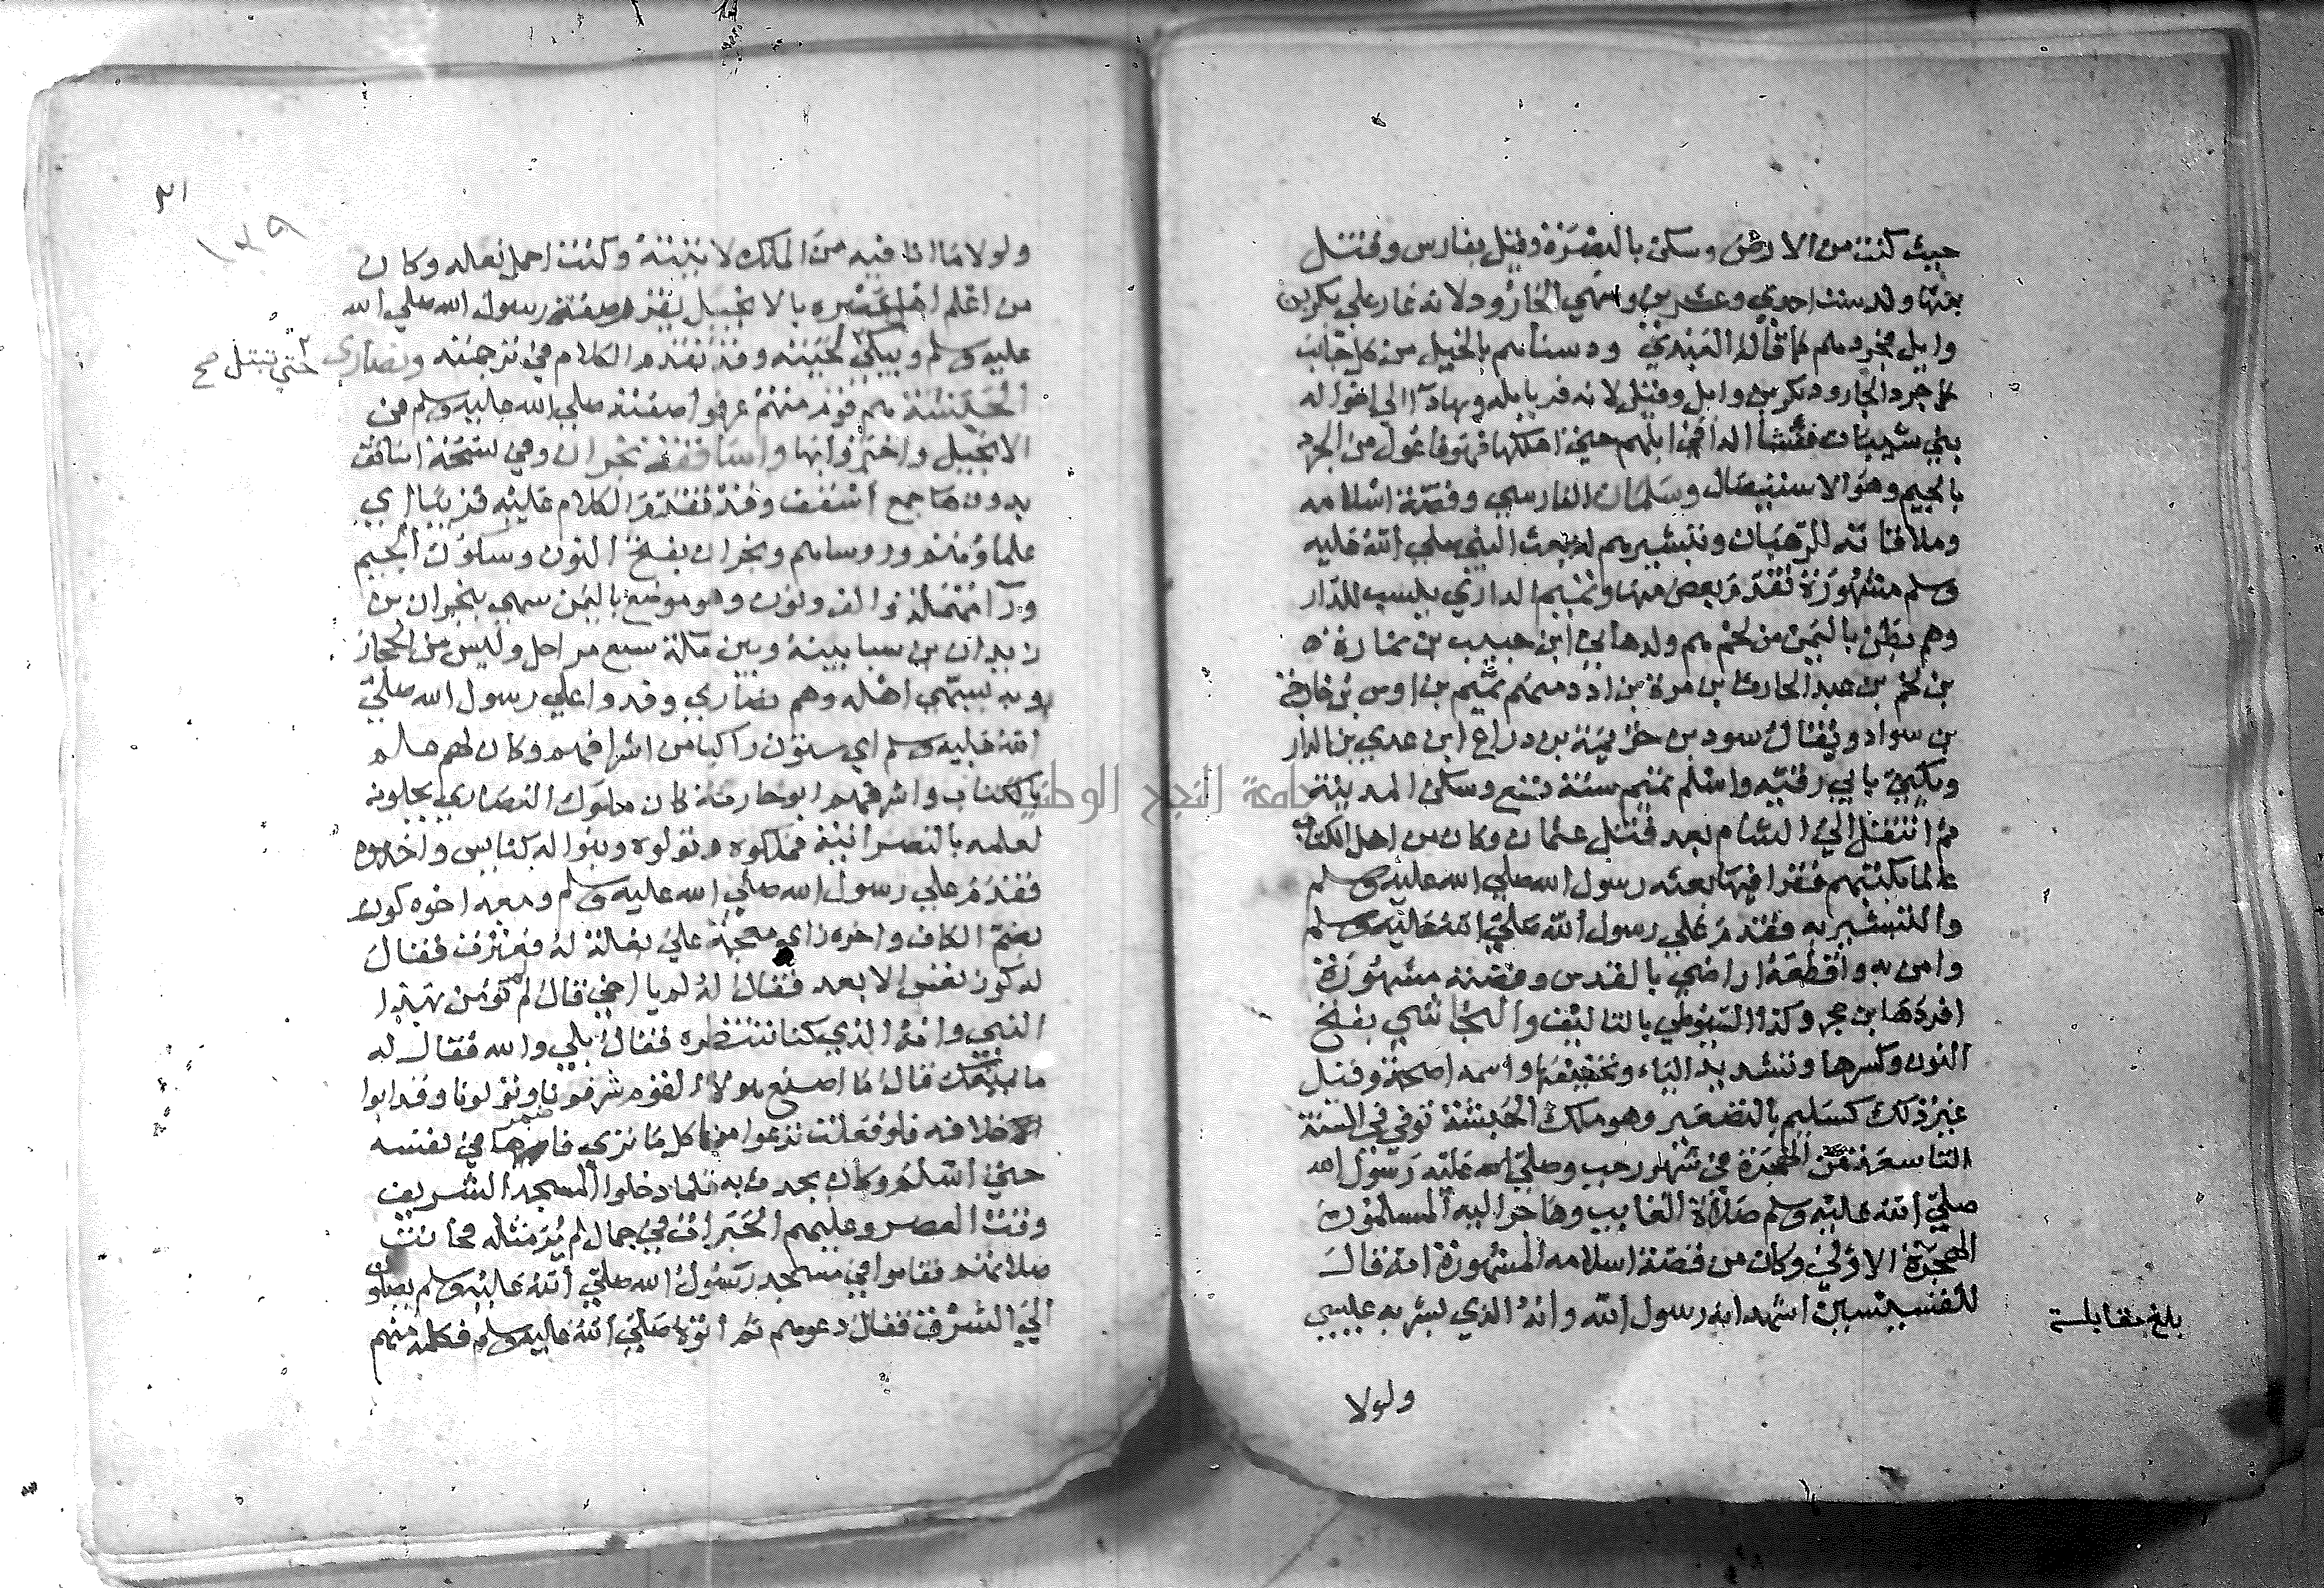 حيث كنت من الارض وسكن بالبصرة وقيل بفارس وقتل
بها ولد سنت احدي وعشرين وسمي الجارود لانه غار علي بكر بن
وايل فجردهم كما قاله العبدي ودسناهم بالخيل من كل جانب
كما جرد الجارود بكر بن وايل وقيل لانه فر بابله وبها دآ الي اخواله
بني شيبان ففشا الدا في ابلهم حتي اهلكها فهو فاعول من الجرد
بالجيم وهو الاستيصال وسلمان الفارسي وقصة اسلامه
وملاقاته للرهبان وتبشيرهم له ببعث النبي صلي الله عليه
وسلم مشهورة تقدم بعض منها وتميم الداري ينسب للدار
وهم بطن باليمن من لخم هم ولد هاني ابن حبيب بن نمارة
بن لخم بن عبد الحارث بن مرة بن ادد منهم تميم بن اوس بن خارجة
بن سواد ويقال سود بن خزيمة بن دراع ابن عدي بن الدار
ويكني بابي رقية واسلم تميم سنة تسع وسكن المدينة
ثم انتقل الي الشام بعد قتل عثمان وكان من اهل الكتاب
عالما بكتبهم فقرا فيها بعثه رسول الله صلي الله عليه وسلم
والتبشير به فقدم علي رسول الله صلي الله عليه وسلم
وامن به واقطعه اراضي بالقدس وقصته مشهورة
افردها ابن حجر وكذا السيوطي بالتاليف والنجاشي بفتح
النون وكسرها وتشديد الياء وتخفيفها واسمه اصحمة وقيل
غير ذلك كسليم بالتصغير وهو ملك الحبشة توفي في السنة
التاسعة من الهجرة في شهر رجب وصلي عليه رسول الله
صلي الله عليه وسلم صلاة الغايب وهاجر اليه المسلمون
الهجرة الاولي وكان من قصة اسلامه المشهورة انه قال
للقسيسين اشهد انه رسول الله وانه الذي بشر به عيسي
بلغ مقابلة
ولولا
٢١
١٣٩
ولولا ما انا فيه من الملك لاتيته وكنت احمل نعله وكان
من اعلم اهل عصره بالانجيل يقرا صفة رسول الله صلي الله
عليه وسلم ويبكي لحيته وقد تقدم الكلام في ترجمته ونصاري
حتي تبتل صح
الحبشة هم قوم منهم عرفوا صفته صلي الله عليه وسلم من
الانجيل واخبروا بها واساقفة نجران وفي نسخة اساقف
بدون ها جمع اسقف وقد تقدم الكلام عليه قريبا اي
علماؤهم وروساهم ونجران بفتح النون وسكون الجيم
ورآ مهملة والف ونون وهو موضع باليمن سمي بنجران بن
زيدان بن سبا بينه وبين مكة سبع مراحل وليس من الحجاز
وبه يسمي اهله وهم نصاري وفدوا علي رسول الله صلي
الله عليه وسلم اي ستون راكبا من اشرافهم وكان لهم علم
بالكتاب واشرفهم ابو حارثة كان ملوك النصاري يجلونه
لعلمه بالنصرانية فملكوه ومولوه وبنوا له كنايس واخدموه
فقدم علي رسول الله صلي الله عليه وسلم ومعه اخوه كوز
بضم الكاف واخره زاي معجمة علي بغلة له فعثرت فقال
له كوز تعس الابعد فقال له لم يا اخي قال لم تؤمن بهذا
النبي وانه الذي كنا ننتظره فقال بلي والله فقال له
ما يمنعك قال ما اصنع هولاء القوم شرفونا ومولونا وقد ابوا
الا خلافه فلو فعلت نزعوا منا كل ما تري فاضمرها في نفسه
حتي اسلم وكان يحدث به فلما دخلوا المسجد الشريف
وقت العصر وعليهم الحبرات في جمال لم ير مثله فحانت
صلاتهم فقاموا في مسجد رسول الله صلي الله عليه وسلم يصلون
الي الشرق فقال دعوهم ثم اتوه صلي الله عليه وسلم فكلمه منهم
جامعة النجاح الوطنية